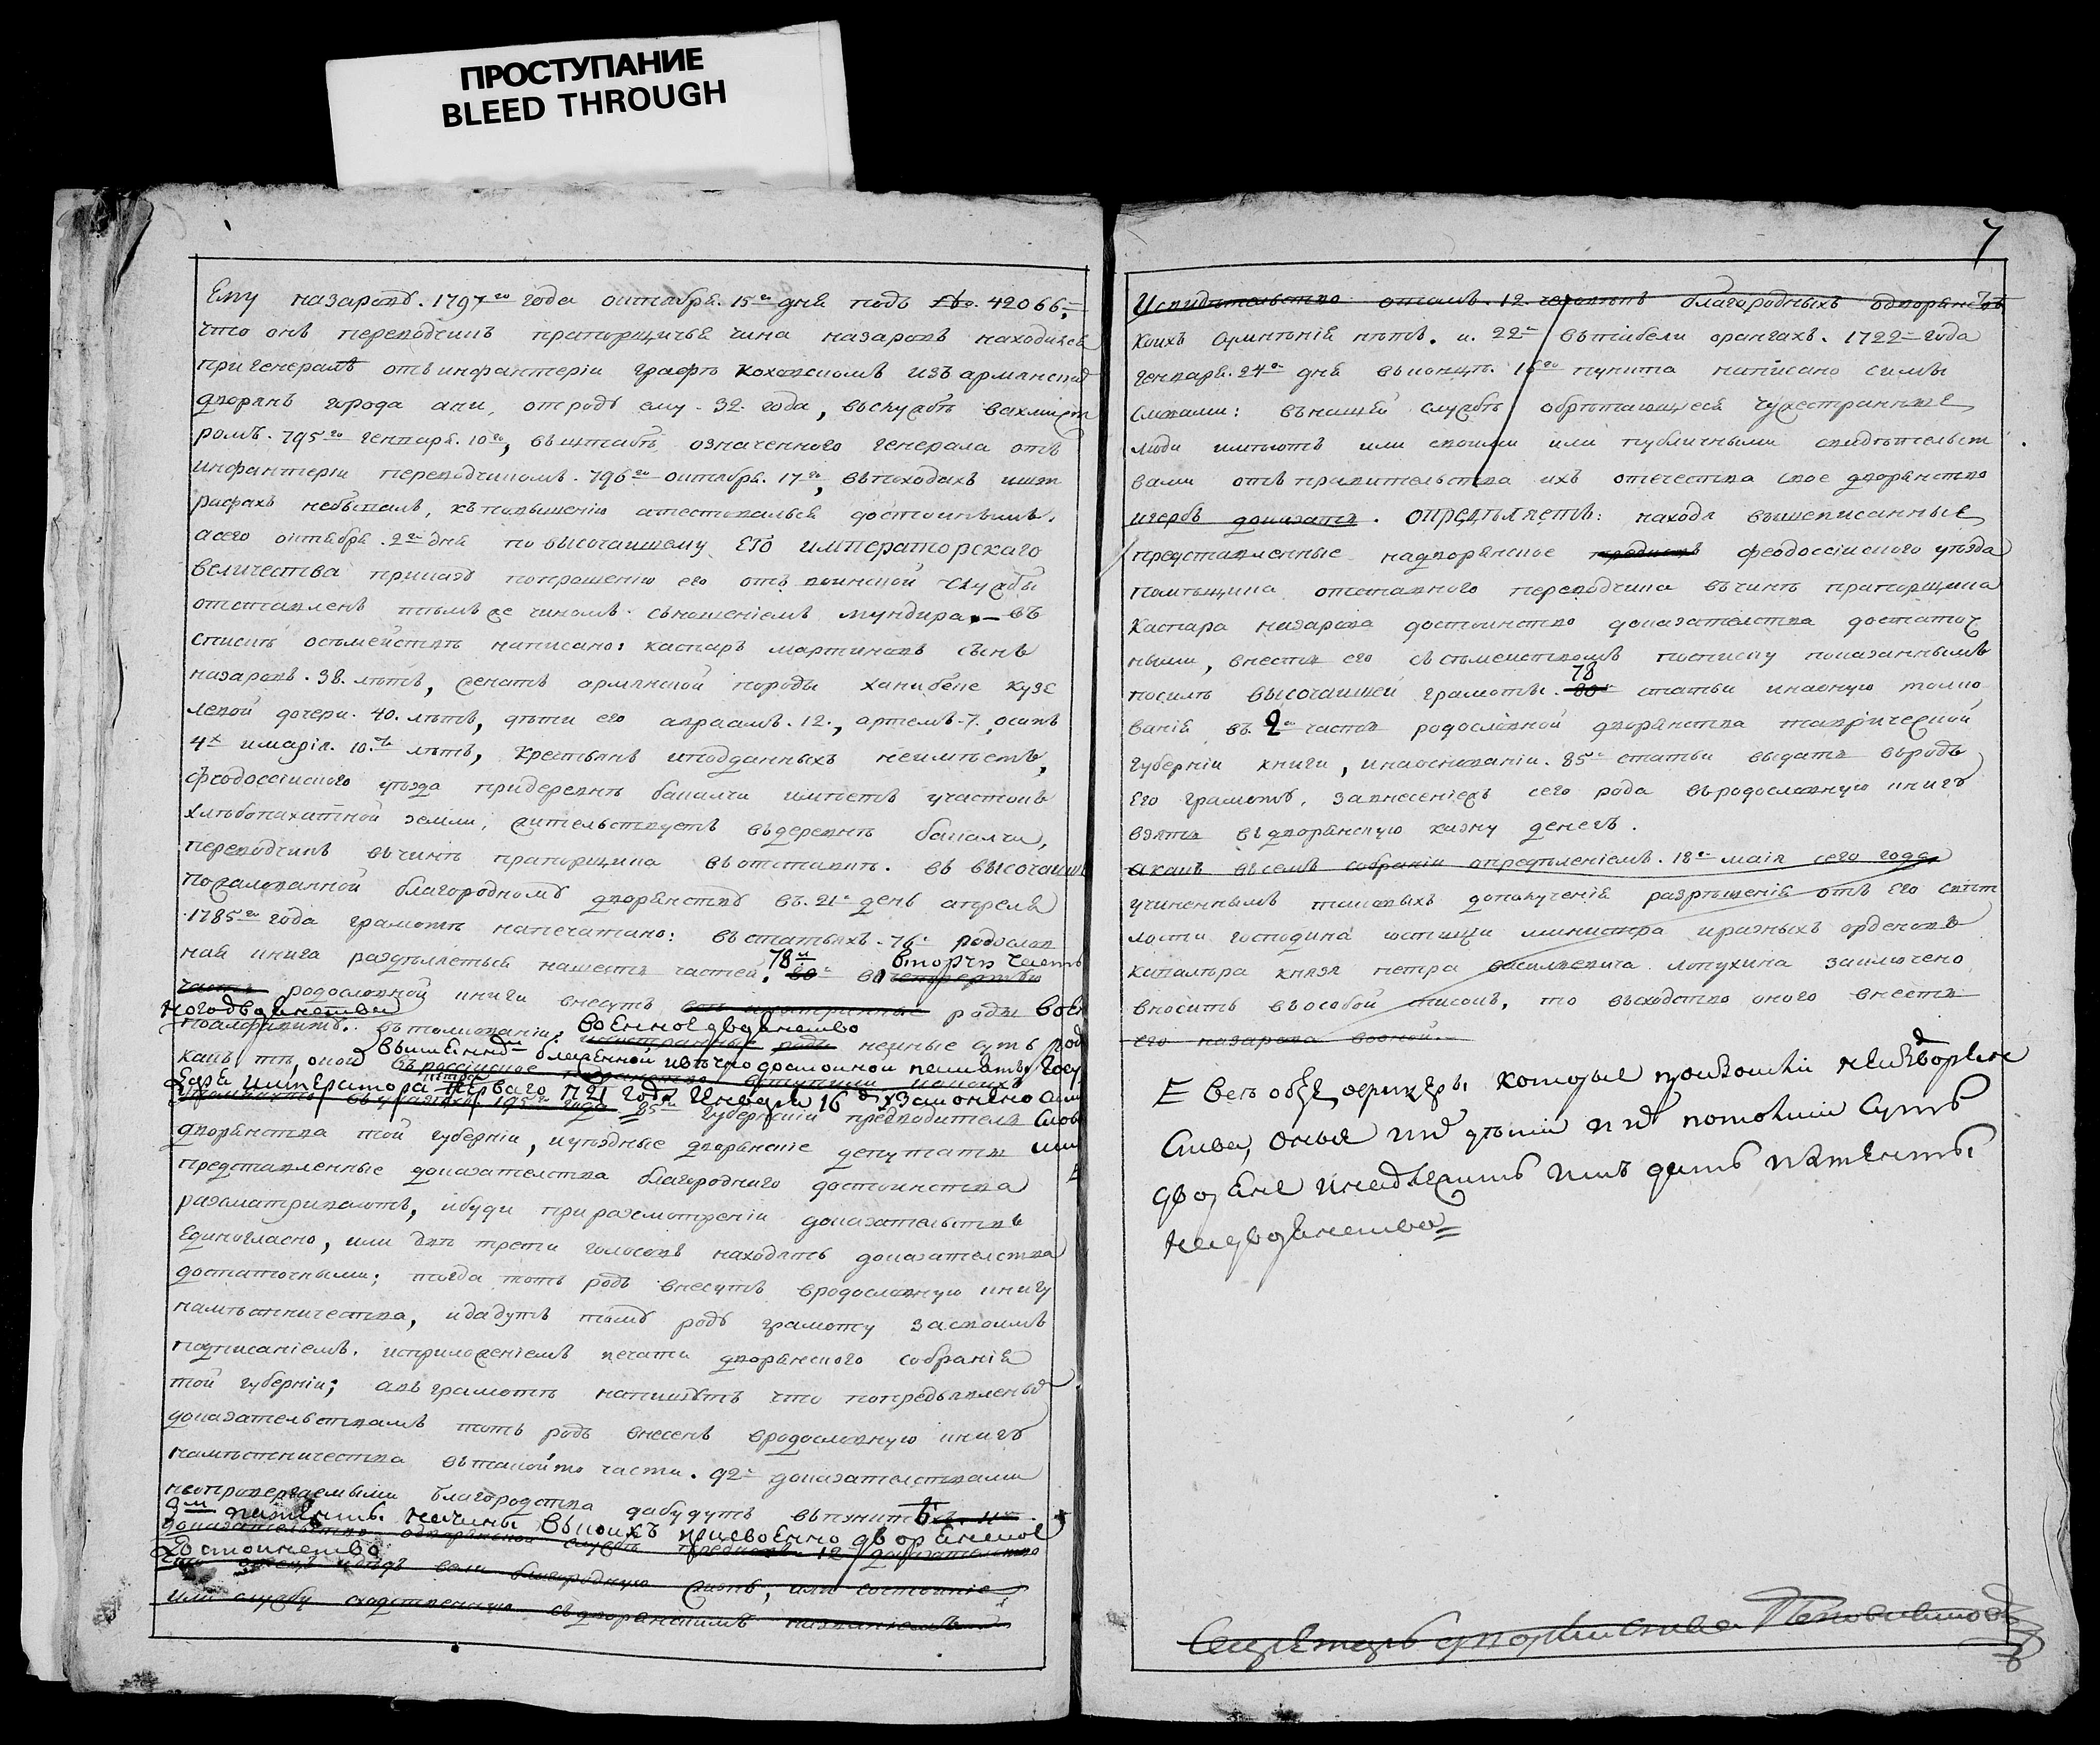 ПРОСТУПАНИЕ
BLEED THROUGH
Ему назарову. 1797го года октября. 15го дня подъ №. 42066.
что онъ переводчикъ прапорщичья чина назаровъ находился
при генералѣ отъ инфантеріи графѣ каховскомъ изъ армянскихъ
дворянъ города ани, отроду ему. 32. года, въ службѣ вахмист
ромъ. 795го генваря. 10го, въ штабѣ означенного генерала отъ
инфантеріи переводчикомъ. 796го октября. 17го, въ походахъ ишт
рафахъ небывалъ, къ повышенію атестовался достойнымъ.
а сего октября. 2го дня по высочайшему его императорскаго
величества приказу по прошенію его отъ воинской службы
отставленъ тѣмъ же чиномъ съ ношеніемъ мундира, въ
спискѣ о семействѣ написано: каспаръ мартиновъ сынъ
назаровъ. 38. лѣтъ, женатъ армянской породы
левой дочери. 40. лѣтъ, дѣти его авраамъ. 12., артемъ. 7., осипъ
4х имарія. 10ть лѣтъ, крестьянъ и подданныхъ неимѣетъ,
феодоссійского уѣзда при деревнѣ имѣетъ участокъ
хлѣбопахатной земли, жительствуетъ въ деревнѣ
переводчикъ въ чинѣ прапорщика въ отставкѣ. въ высочайше
пожалованной благородному дворянству въ. 21й день апреля
1785го года грамотѣ напечатано: въ статьяхъ. 76й родослов
ная книга раздѣляется на шесть частей. 78й вторую часть
родословной книги внесутъ роды воен
ного дворянства
поалфавиту. въ толкованіи, военное дворянство неиные суть роды
какъ тѣ, кои блаженной и вѣчно достойной памяти Госу
даря императора петра перваго 1721 года Генваря 16 д. узаконено
85й губернскій предводитель
дворянства той губерніи, и уѣздные дворянскіе депутаты
представленные доказателства благородного достоинства
разматриваютъ, ибуди при разсмотреніи доказательствъ
единогласно, или двѣ трети голосовъ находятъ доказателства
достаточными; тогда тотъ родъ внесутъ вродословную книгу
намѣстничества, и дадутъ тому роду грамоту за своимъ
подписаніемъ. и сприложеніемъ печати дворянского собранія
той губерніи; а въ грамотѣ напишутъ что по предъявленнымъ
доказательствамъ тотъ родъ внесенъ вродословную книгу
намѣстничества въ такой то части. 92й доказателствами
неопровергаемыми благородства да будутъ въ пунктѣ
патенты на чины въ коихъ присвоено дворянское
достоинство
отецъ идѣдъ вели благородную жизнь, или состояніе
или службу сходственную съ дворянскимъ названіемъ
7
И свидѣтельство о томъ. 12. человѣкъ благородныхъ о дворянствѣ
коихъ сумнѣнія нѣтъ. и. 22й въ табели о рангахъ. 1722го года
генваря. 24го дня въ концѣ. 16го пункта написано симѣ
словами: в нашей службѣ обрѣтающіеся чужестранные
люди имѣютъ или своими или публичными свидѣтельст
вами отъ правительства ихъ отечества свое дворянство
и гербъ доказать. опредѣляетъ: находя вышеписанные
представленные на дворянское феодоссійского уѣзда
помѣщика отставного переводчика въ чинѣ прапорщика
каспара назарова достоинство доказателства достаточ
ными, внести его съ семействомъ по списку показаннымъ
по силѣ высочайшей грамоты. 78 статьи и на оную толко
ванія въ. 2ю часть родословной дворянства таврической
губерніи книги, и на основаніи. 85й статьи выдать въ родъ
его грамоту, за внесеніежъ сего рода въ родословную книгу
взять въ дворянскую казну денегъ.
а какъ въ семъ собраніи опредѣленіемъ. 18го маія сего года
учиненнымъ таковыхъ до полученія разрѣшенія отъ его свѣт
лости господина юстиціи министра и разныхъ орденовъ
кавалера князя петра васильевича лопухина заключено
вносить въ особой списокъ, то въ сходство оного внесть
его назарова воной.
всѣ оберъ офицеры которые произошли не издворян
ства, оные и ихъ дѣти и ихъ потомки суть
дворяне и надлежитъ имъ дать патенты
на дворянство
Секретарь дворянства